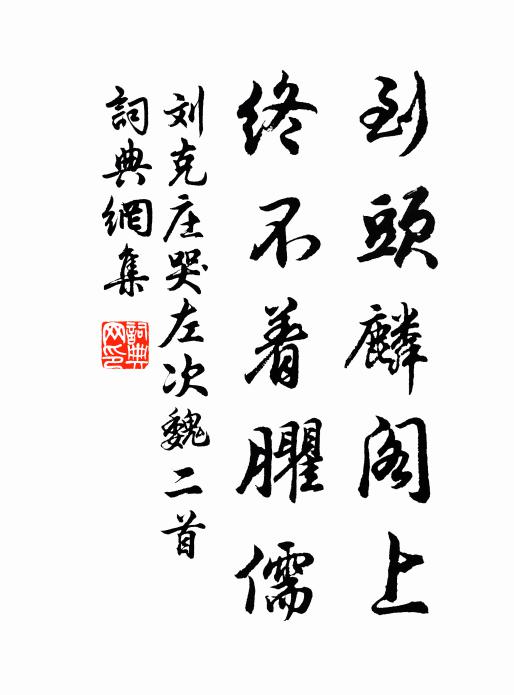 到頭麟阁上
终不着臞儒
刘克庄哭左次魏二首
詞典網集
詞典网印